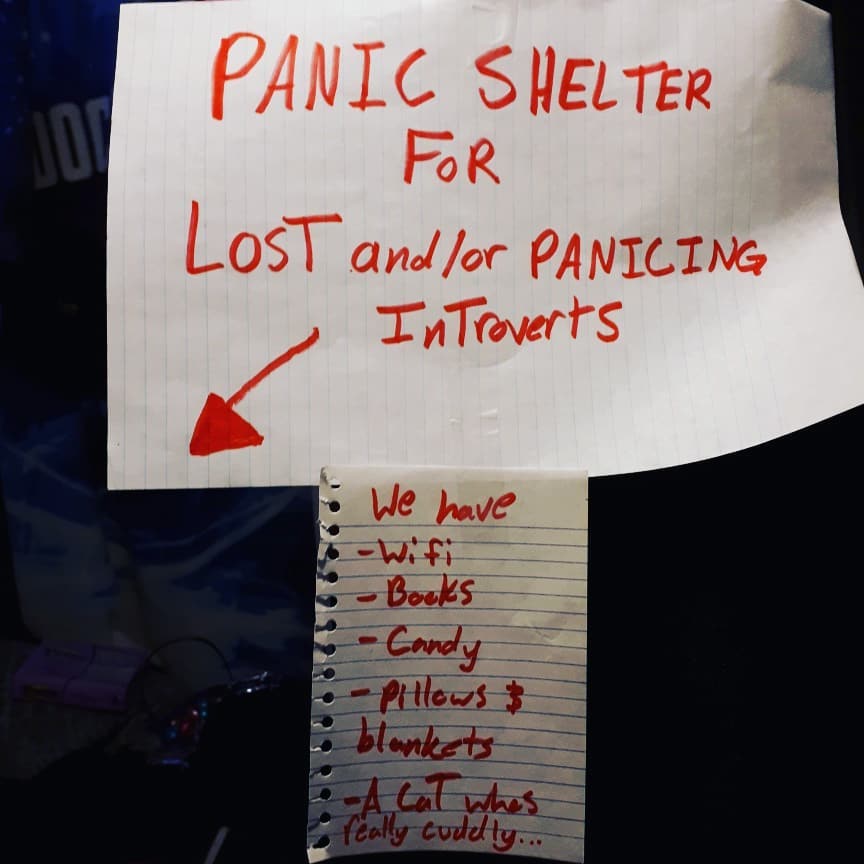 PANIC SHELTER
FOR
LOST and/or PANICING
InTroverts
We have
-Wifi
- Books
- Candy
- pillows $
blankets
-A CaT whos
really cuddly...